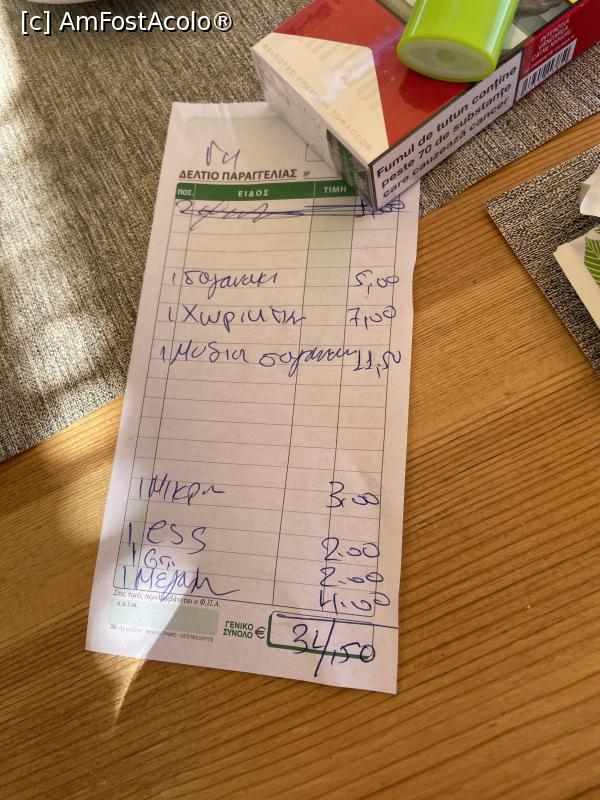 [c] AmFostAcolo®
SELECTED PREMIUM TOBACCOS
Fumul de tutun conține
peste 70 de substanțe
care cauzează cancer
ΔΕΛΤΙΟ ΠΑΡΑΓΓΕΛΙΑΣ №
ΠΟΣ. ΕΙΔΟΣ ΤΙΜΗ
1 Σαγανακι 5,00
1 Χωριατικη 7,00
1 Μυδια σαγανακι 11,50
1 Μικρη 3,00
1 ess 2,00
1 2,00
1 Μεγαλη 4,00
Στις τιμές περιλαμβάνεται ο Φ.Π.Α.
Α.Δ.Τ.Μ.
ΓΕΝΙΚΟ
ΣΥΝΟΛΟ € 34,50